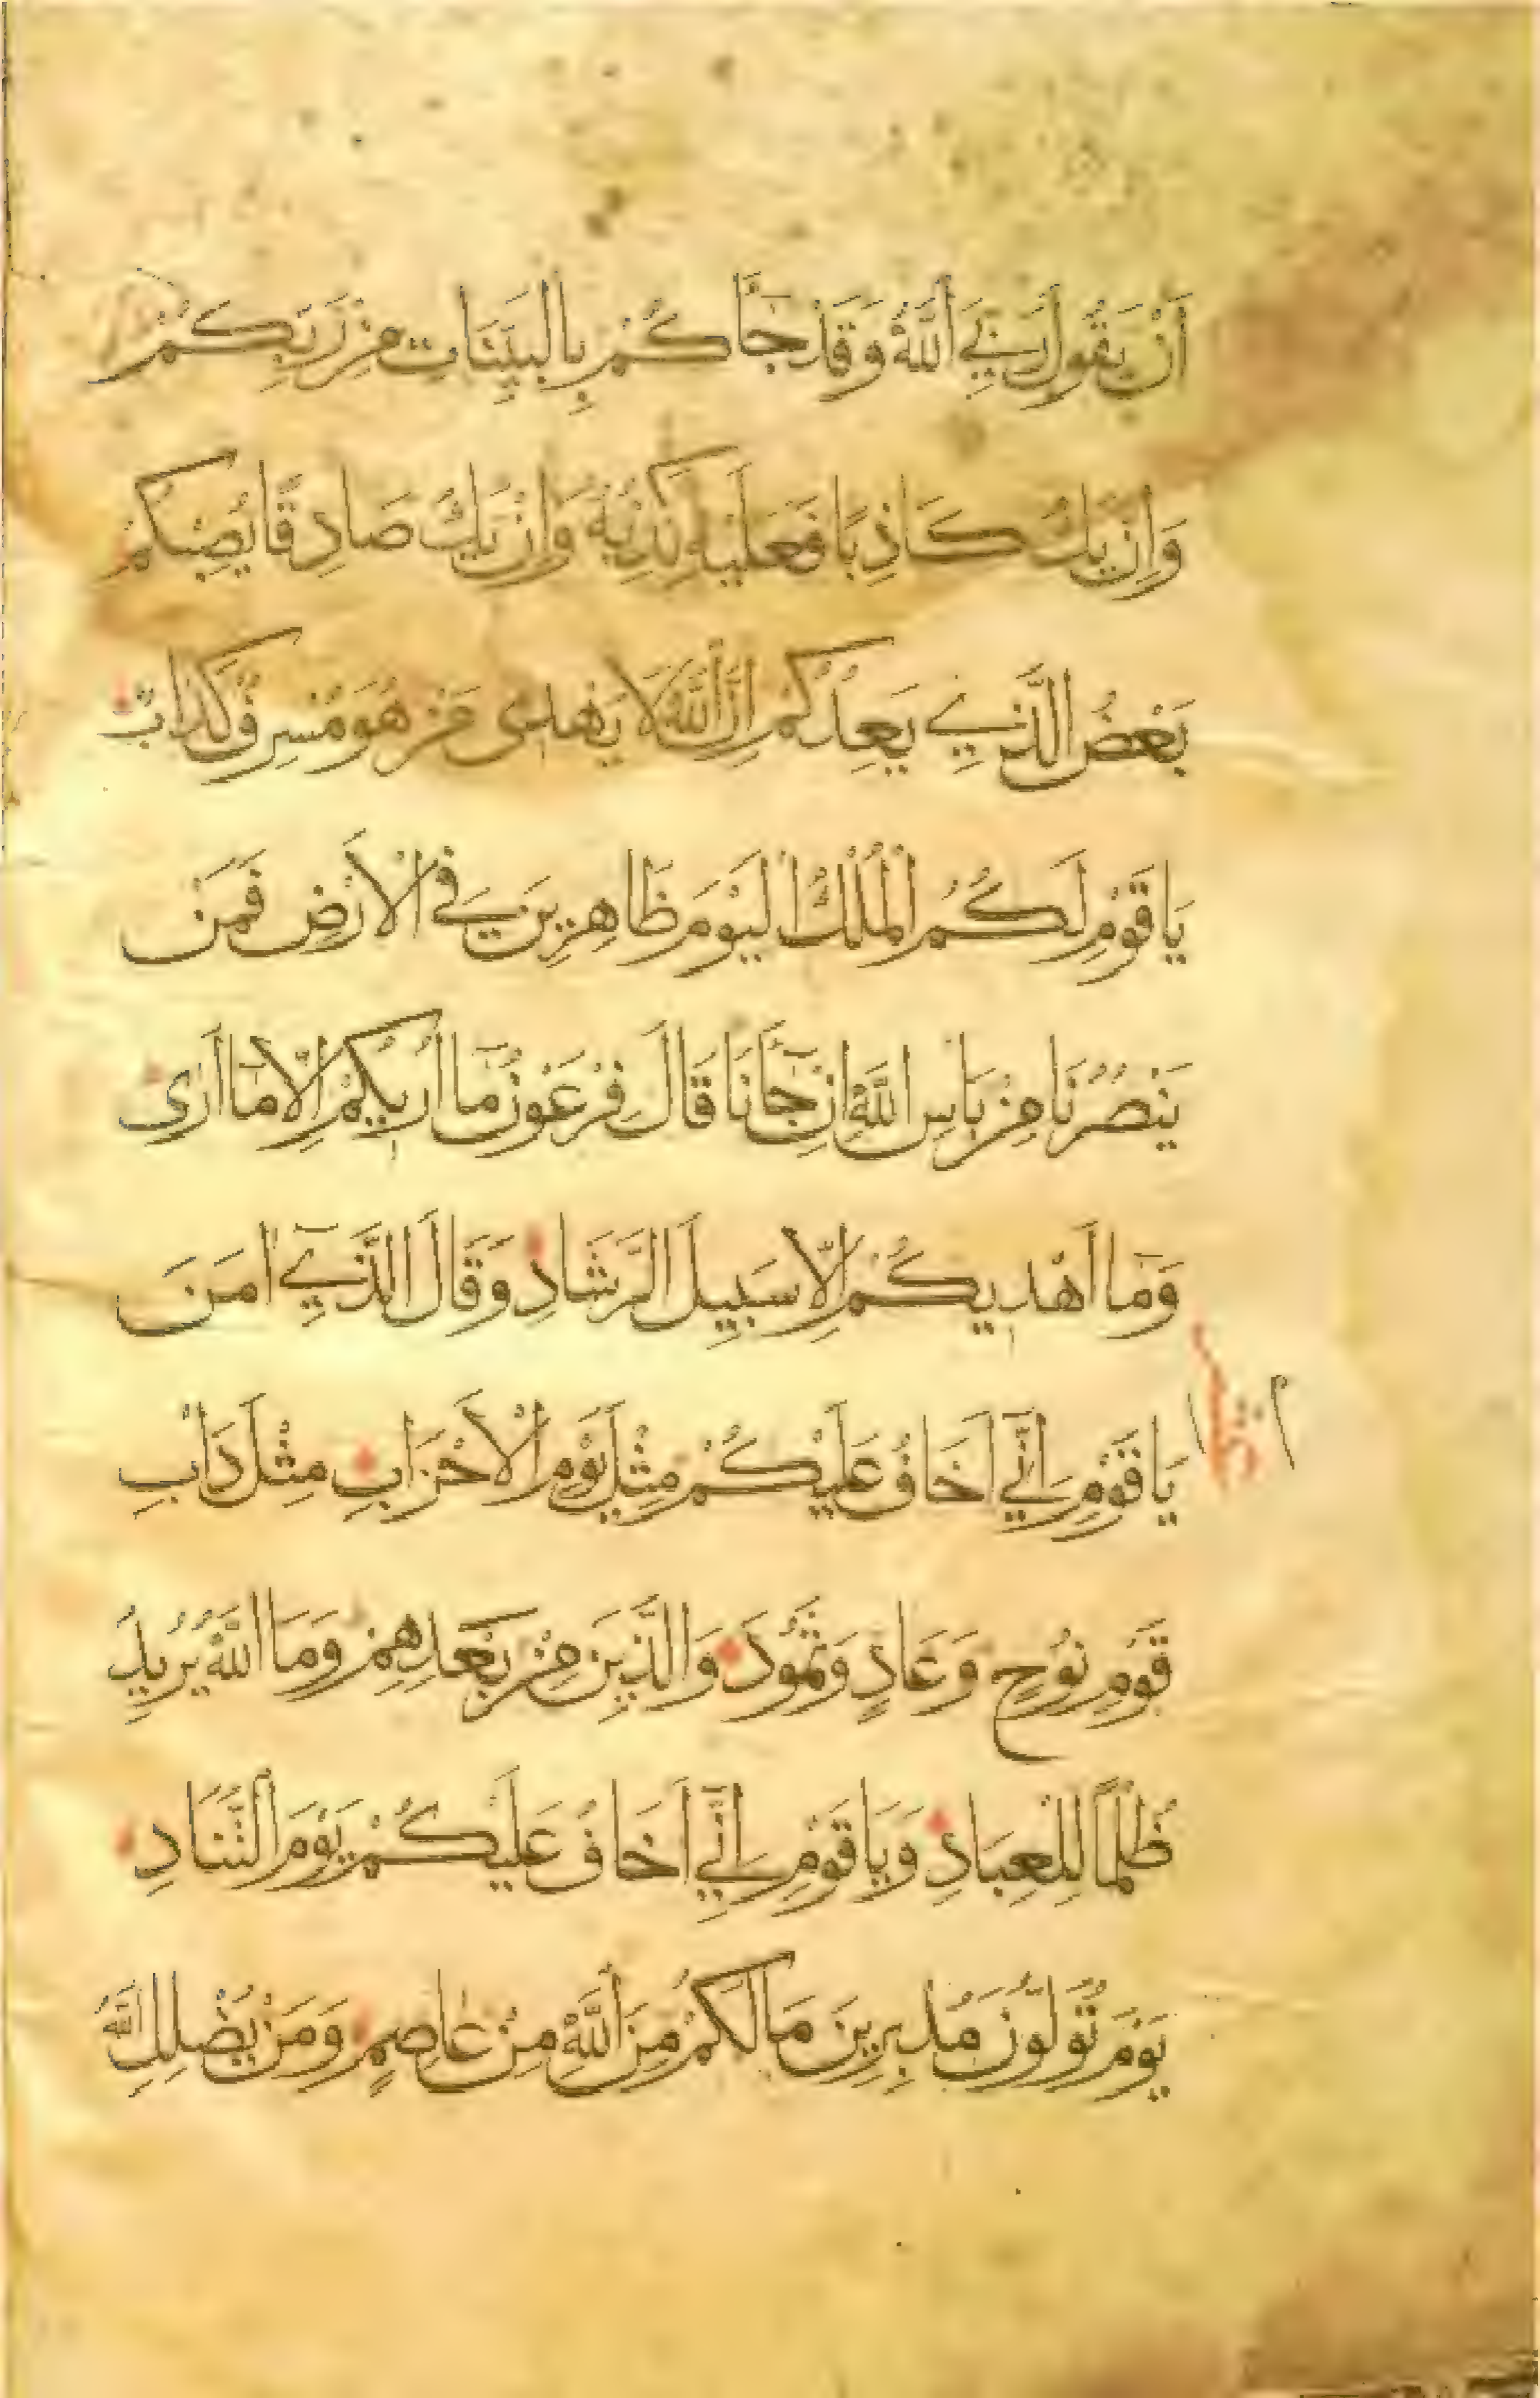 أَنْ يَقُولَ رَبِّيَ اللَّهُ وَقَدْ جَآكُمْ بِالْبَيِّنَاتِ مِنْ رَبِّكُمْ
وَإِنْ يَكُ كَاذِبًا فَعَلَيْهِ كَذِبُهُ وَإِنْ يَكُ صَادِقًا يُصِبْكُمْ
بَعْضُ الَّذِي يَعِدُكُمْ إِنَّ اللَّهَ لَا يَهْدِى مَنْ هُوَ مُسْرِفٌ كَذَّابٌ
يَا قَوْمِ لَكُمُ الْمُلْكُ الْيَوْمَ ظَاهِرِينَ فِي الْأَرْضِ فَمَنْ
يَنْصُرُنَا مِنْ بَاسِ اللَّهِ إِنْ جَآنَا قَالَ فِرْعَوْنُ مَآ أُرِيكُمْ إِلَّا مَآ أَرَى
وَمَآ أَهْدِيكُمْ إِلَّا سَبِيلَ الرَّشَادِ وَقَالَ الَّذِي آمَنَ
يَا قَوْمِ إِنِّي أَخَافُ عَلَيْكُمْ مِثْلَ يَوْمِ الْأَحْزَابِ مِثْلَ دَأْبِ
قَوْمِ نُوحٍ وَعَادٍ وَثَمُودَ وَالَّذِينَ مِنْ بَعْدِهِمْ وَمَا اللَّهُ يُرِيدُ
ظُلْمًا لِلْعِبَادِ وَيَا قَوْمِ إِنِّي أَخَافُ عَلَيْكُمْ يَوْمَ التَّنَادِ
يَوْمَ تُوَلُّونَ مُدْبِرِينَ مَا لَكُمْ مِنَ اللَّهِ مِنْ عَاصِمٍ وَمَنْ يُضْلِلِ اللَّهُ